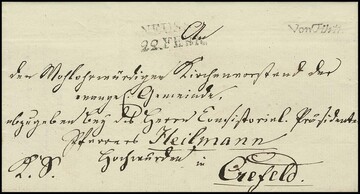 NEUSS
22. FEBR.
An
den Wohlehrwürdigen Kirchenvorstand der
evangel. Gemeinde,
abzugeben bey des Herrn Consistorial-Präsidenten
Pfarrers Heilmann
K. S. Hochwürden in
Crefeld.